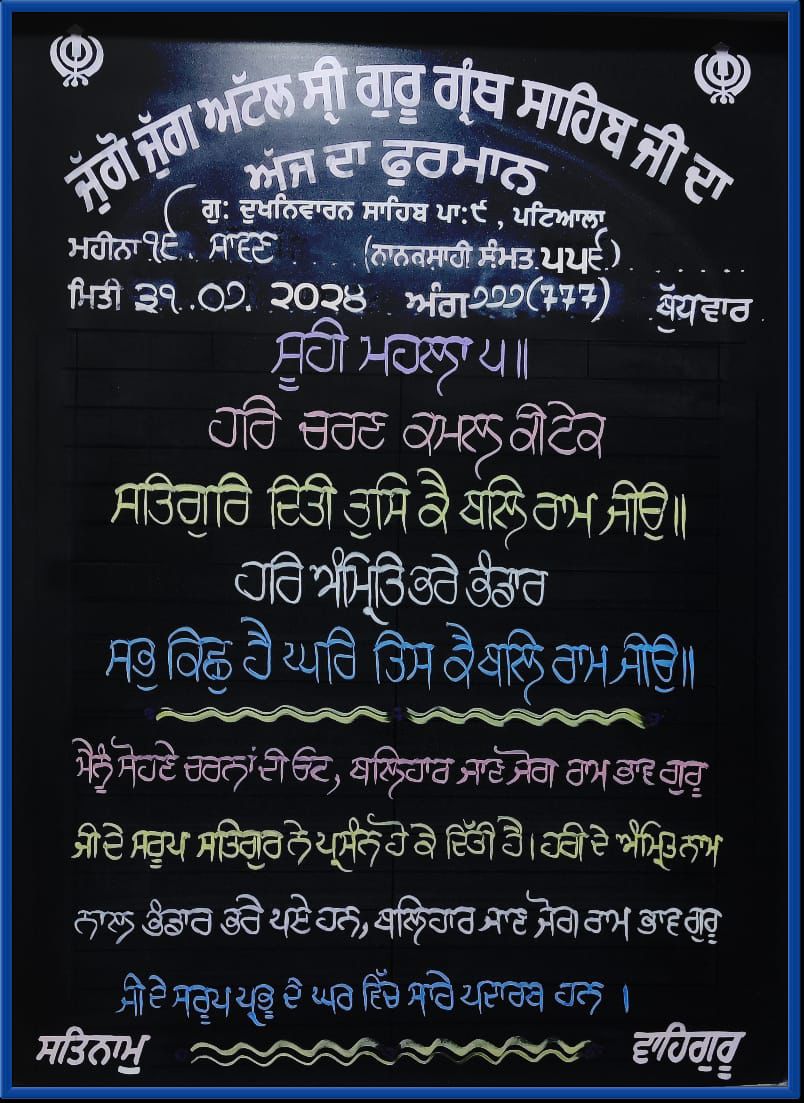 ਜੁੱਗੋ ਜੁੱਗ ਅਟੱਲ ਸ੍ਰੀ ਗੁਰੂ ਗ੍ਰੰਥ ਸਾਹਿਬ ਜੀ ਦਾ
ਅੱਜ ਦਾ ਫੁਰਮਾਨ
ਗੁ: ਦੁਖਨਿਵਾਰਨ ਸਾਹਿਬ ਪਾ:੯, ਪਟਿਆਲਾ
ਮਹੀਨਾ ੧੬. ਸਾਵਣ (ਨਾਨਕਸਾਹੀ ਸੰਮਤ ੫੫੬)
ਮਿਤੀ ੩੧.੦੭.੨੦੨੪ ਅੰਗ ੭੭੭(777) ਬੁੱਧਵਾਰ
ਸੂਹੀ ਮਹਲਾ ੫॥
ਹਰਿ ਚਰਣ ਕਮਲ ਕੀ ਟੇਕ
ਸਤਿਗੁਰਿ ਦਿਤੀ ਤੁਸਿ ਕੈ ਬਲਿ ਰਾਮ ਜੀਉ॥
ਹਰਿ ਅੰਮ੍ਰਿਤਿ ਭਰੇ ਭੰਡਾਰ
ਸਭੁ ਕਿਛੁ ਹੈ ਘਰਿ ਤਿਸ ਕੈ ਬਲਿ ਰਾਮ ਜੀਉ॥
ਮੈਨੂੰ ਸੋਹਣੇ ਚਰਨਾਂ ਦੀ ਓਟ, ਬਲਿਹਾਰ ਜਾਣੇ ਜੋਗ ਰਾਮ ਭਾਵ ਗੁਰੂ
ਜੀ ਦੇ ਸਰੂਪ ਸਤਿਗੁਰ ਨੇ ਪ੍ਰਸੰਨ ਹੋ ਕੇ ਦਿੱਤੀ ਹੈ। ਹਰੀ ਦੇ ਅੰਮ੍ਰਿਤ ਨਾਮ
ਨਾਲ ਭੰਡਾਰ ਭਰੇ ਪਏ ਹਨ, ਬਲਿਹਾਰ ਜਾਣ ਜੋਗ ਰਾਮ ਭਾਵ ਗੁਰੂ
ਜੀ ਦੇ ਸਰੂਪ ਪ੍ਰਭੂ ਦੇ ਘਰ ਵਿੱਚ ਸਾਰੇ ਪਦਾਰਥ ਹਨ ।
ਸਤਿਨਾਮੁ ਵਾਹਿਗੁਰੂ